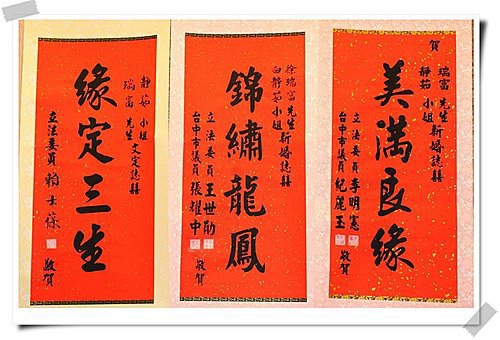 賀
瑞富 先生
靜茹 小姐
新婚誌囍
美滿良緣
立法委員 李明憲
台中市議員 紀麗玉
敬賀
徐瑞富先生
白靜茹小姐
新婚誌囍
錦繡龍鳳
立法委員 王世勛
台中市議員 張耀中
敬賀
靜茹 小姐
瑞富 先生
文定誌囍
緣定三生
立法委員 賴士葆
敬賀